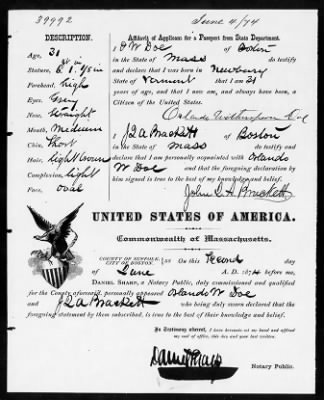 39992
June 4/74
DESCRIPTION.
Age, 31
Stature, 5 ft in
Forehead, high
Eyes, Grey
Nose, Straight
Mouth, Medium
Chin, Short
Hair, light brown
Complexion, light
Face, oval
Affidavit of Applicant for a Passport from State Department.
I O W Doe of Boston
in the State of Mass do testify
and declare that I was born in Newbury
State of Vermont that I am 31
years of age, and that I now am, and always have been, a
Citizen of the United States.
Orlando Doe
I J Q A Brackett of Boston
in the State of Mass do testify and
declare that I am personally acquainted with Orlando
W Doe and that the foregoing declaration by
him signed is true to the best of my knowledge and belief.
John Q A Brackett
UNITED STATES OF AMERICA.
Commonwealth of Massachusetts.
COUNTY OF SUFFOLK,
CITY OF BOSTON.
ss On this Second day
of June A. D. 1874 before me,
DANIEL SHARP, a Notary Public, duly commissioned and qualified
for the County aforesaid, personally appeared Orlando W Doe
and J Q A Brackett who being duly sworn declared that the
foregoing statement by them subscribed, is true to the best of their knowledge and belief.
In Testimony whereof, I have hereunto set my hand and affixed
my seal of office, this day and year last written.
Daniel Sharp
Notary Public.